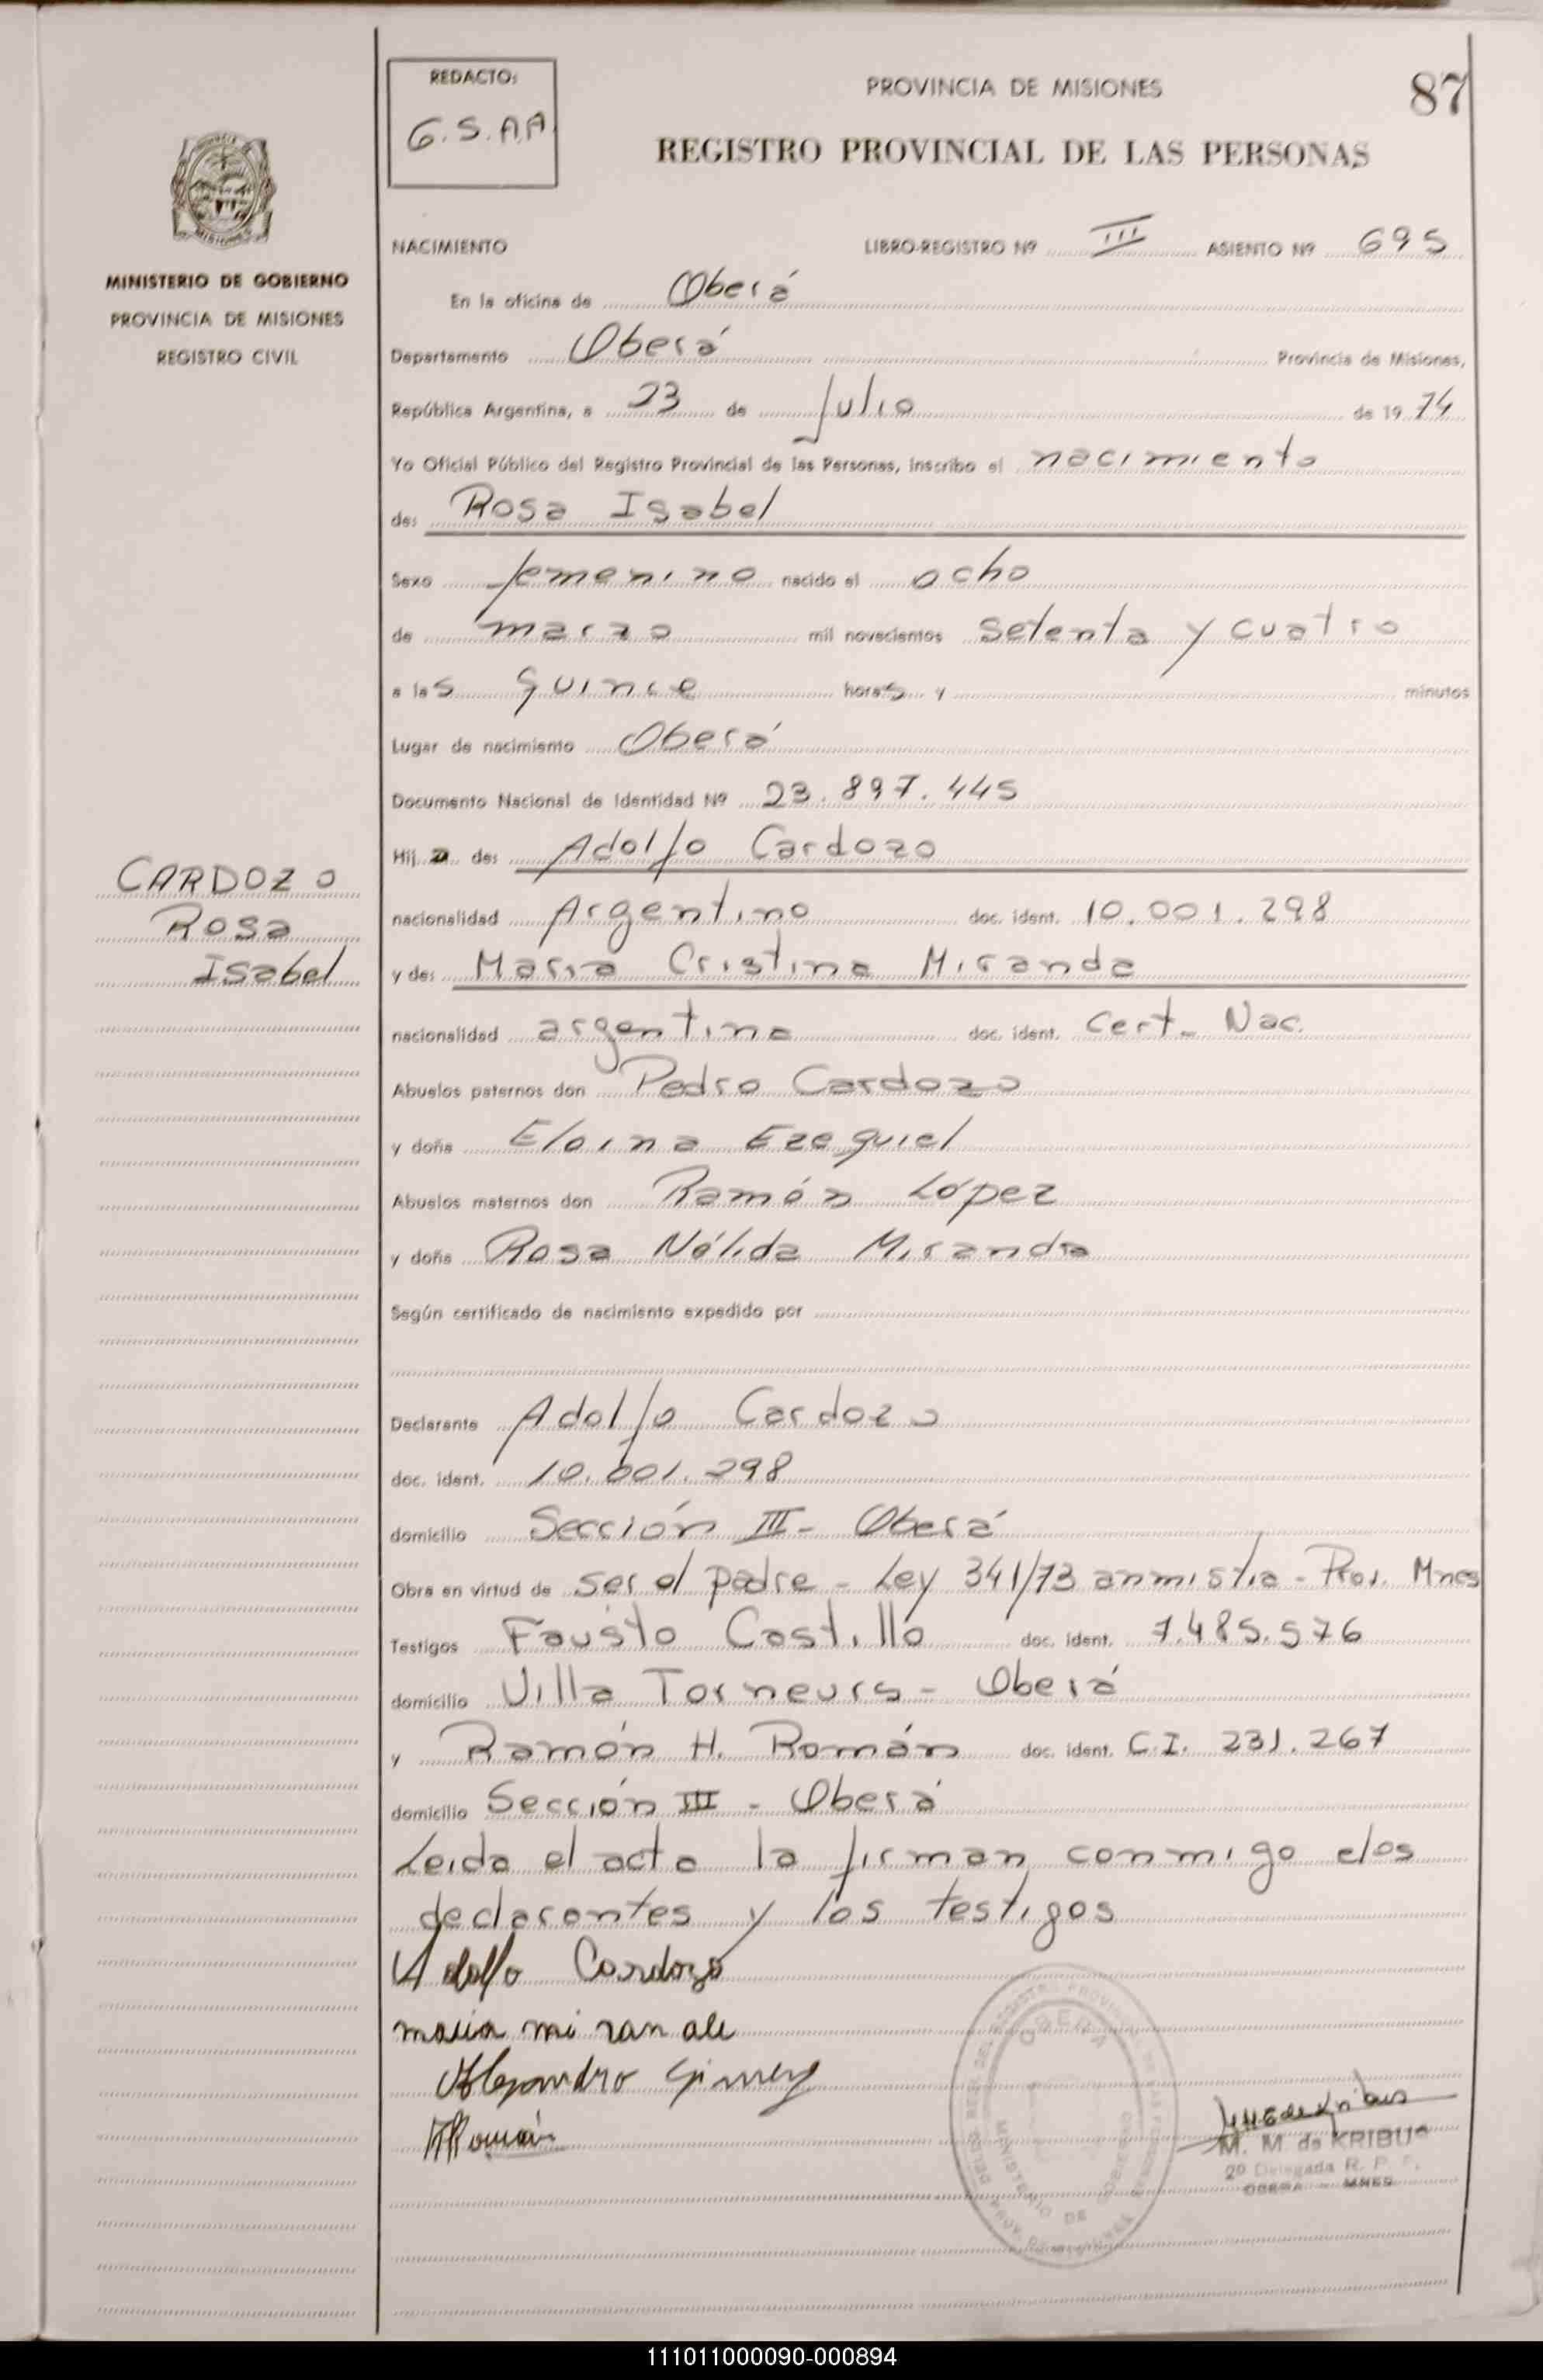 REDACTO:
G.S.A.A.
PROVINCIA DE MISIONES
87
REGISTRO PROVINCIAL DE LAS PERSONAS
MINISTERIO DE GOBIERNO
PROVINCIA DE MISIONES
REGISTRO CIVIL
NACIMIENTO LIBRO-REGISTRO Nº III ASIENTO Nº 695
En la oficina de Oberá
Departamento Oberá Provincia de Misiones,
República Argentina, a 23 de Julio de 1974
Yo Oficial Público del Registro Provincial de las Personas, inscribo el nacimiento
de: Rosa Isabel
Sexo femenino nacido el ocho
de marzo mil novecientos setenta y cuatro
a las quince horas y minutos
Lugar de nacimiento Oberá
Documento Nacional de Identidad Nº 23.897.445
Hija de: Adolfo Cardozo
CARDOZO
Rosa
Isabel
nacionalidad Argentino doc. ident. 10.001.298
y de: María Cristina Miranda
nacionalidad argentina doc. ident. Cert. Nac.
Abuelos paternos don Pedro Cardozo
y doña Eloina Ezequiel
Abuelos maternos don Ramón López
y doña Rosa Nélida Miranda
Según certificado de nacimiento expedido por
Declarante Adolfo Cardozo
doc. ident. 10.001.298
domicilio Sección III - Oberá
Obra en virtud de ser el padre - Ley 341/73 anmistia - Prov. Mnes
Testigos Fausto Castillo doc. ident. 7.485.576
domicilio Villa Torneurs - Oberá
y Ramón H. Román doc. ident. C.I. 231.267
domicilio Sección III - Oberá
Leida el acta la firman conmigo los
declarantes y los testigos
Adolfo Cardozo
maria mi ran
Alejandro
Román
OBERA
MINISTERIO DE GOBIERNO
M. M. de KRIBUS
2º Delegada R. P. P.
OBERA - MNES
111011000090-000894